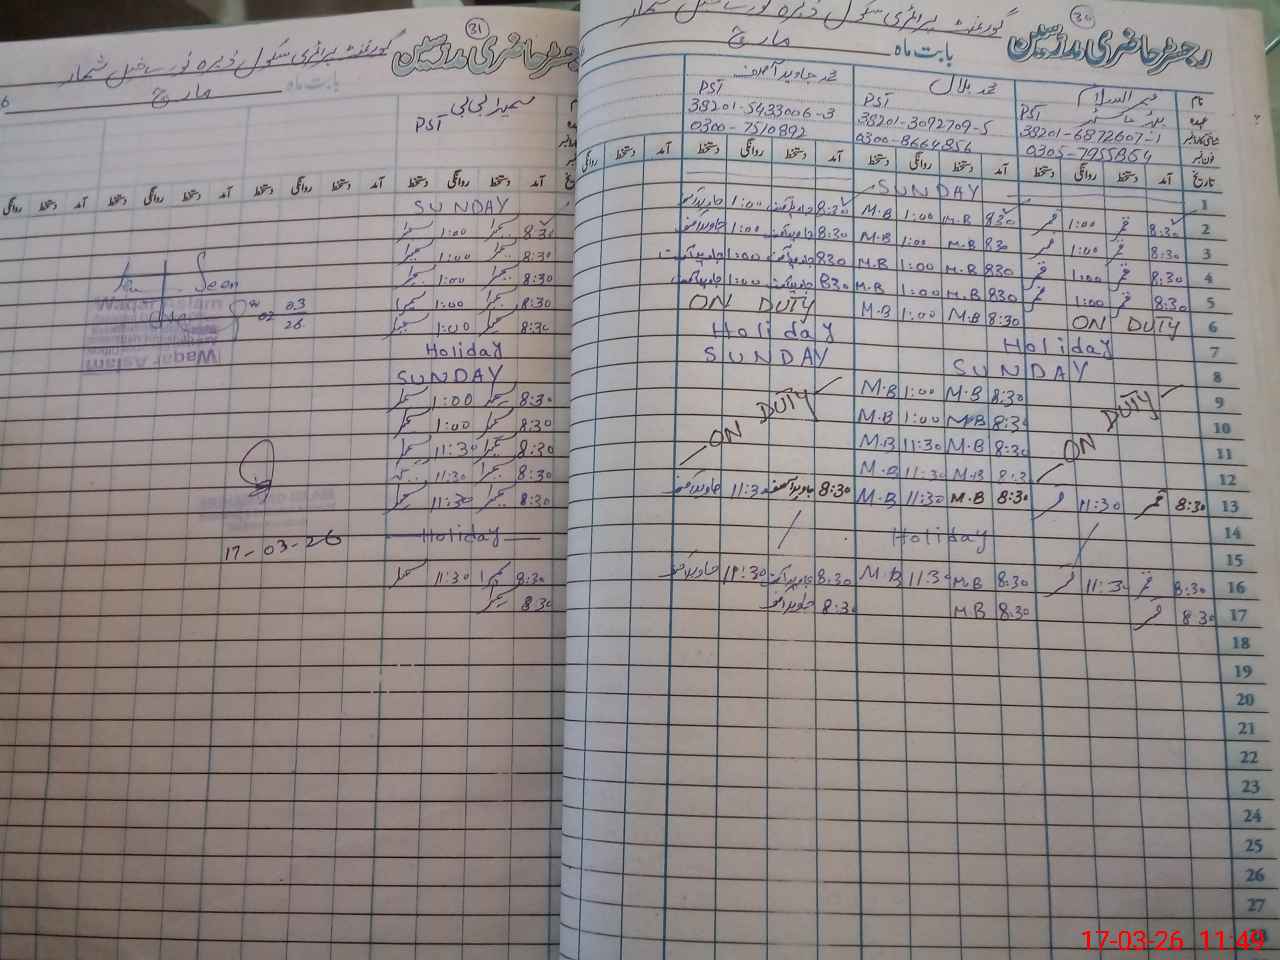 30
رجسٹر حاضری مدرسین
گورنمنٹ پرائمری سکول ڈیرہ نور
بابت ماہ مارچ
نام
قمر السلام محمد بلال محمد جاوید آصف
PST PST
38201-6872607-1 38201-3092709-5 38201-5433006-3
0305-7955864 0300-8664856 0300-7510892
تاریخ آمد دستخط روانگی دستخط آمد دستخط روانگی دستخط آمد دستخط روانگی دستخط آمد دستخط روانگی
1 SUNDAY
2 8:30 قمر 1:00 قمر 8:30 M.B 1:00 M.B 8:30 جاوید آصف 1:00 جاوید آصف
3 8:30 قمر 1:00 قمر 830 M.B 1:00 M.B 8:30 جاوید آصف 1:00 جاوید آصف
4 8:30 قمر 1:00 قمر 830 M.B 1:00 M.B 830 جاوید آصف 1:00 جاوید آصف
5 8:30 قمر 1:00 قمر 830 M.B 1:00 M.B 8:30 جاوید آصف 1:00 جاوید آصف
6 ON DUTY 8:30 M.B 1:00 M.B ON DUTY
7 Holiday Holiday
8 SUNDAY SUNDAY
9 8:30 M.B 1:00 M.B
10 ON DUTY 8:30 M.B 1:00 M.B ON DUTY
11 8:30 M.B 11:30 M.B
12 8:30 M.B 11:30 M.B
13 8:30 قمر 11:30 قمر 8:30 M.B 11:30 M.B 8:30 جاوید آصف 11:30 جاوید آصف
14 Holiday
15
16 8:30 قمر 11:30 قمر 8:30 M.B 11:30 M.B 8:30 جاوید آصف 11:30 جاوید آصف
17 8:30 قمر 8:30 M.B 8:30 جاوید آصف
18
19
20
21
22
23
24
25
26
27
28
31
رجسٹر حاضری مدرسین
گورنمنٹ پرائمری سکول ڈیرہ نور
بابت ماہ مارچ
سمیرا بی بی
PST
آمد دستخط روانگی دستخط آمد دستخط روانگی دستخط آمد دستخط روانگی
SUNDAY
8:30 سمیرا 1:00 سمیرا
8:30 سمیرا 1:00 سمیرا
8:30 سمیرا 1:00 سمیرا
8:30 سمیرا 1:00 سمیرا
8:30 سمیرا 1:00 سمیرا
Holiday
SUNDAY
8:30 سمیرا 1:00 سمیرا
8:30 سمیرا 1:00 سمیرا
8:30 سمیرا 11:30 سمیرا
8:30 سمیرا 11:30 سمیرا
8:30 سمیرا 11:30 سمیرا
Holiday
8:30 سمیرا 11:30 سمیرا
8:30 سمیرا
Seen
03
26
Waqar Aslam
17-03-26
17-03-26 11:49